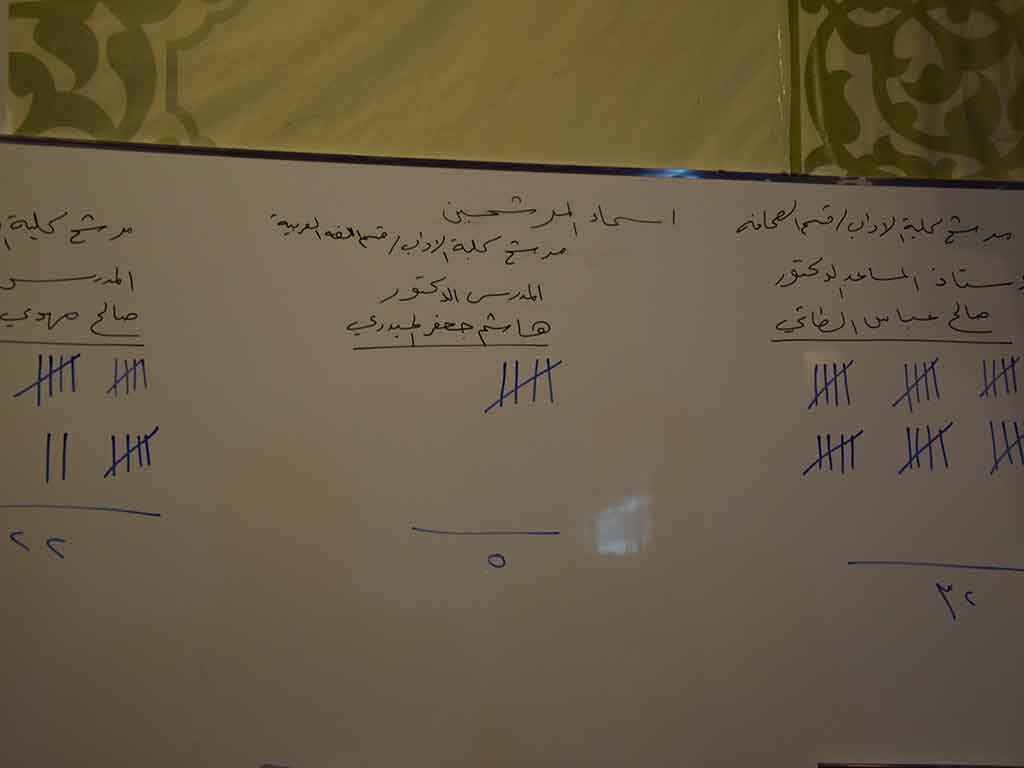 اسماء المرشحين
مرشح كلية الاداب / قسم الصحافة
ستاذ المساعد الدكتور
صالح عباس الطائي
٣٢
مرشح كلية الاداب / قسم اللغة العربية
المدرس الدكتور
هاشم جعفر
٥
مرشح كلية
المدرس
صالح مهدي
٢٢